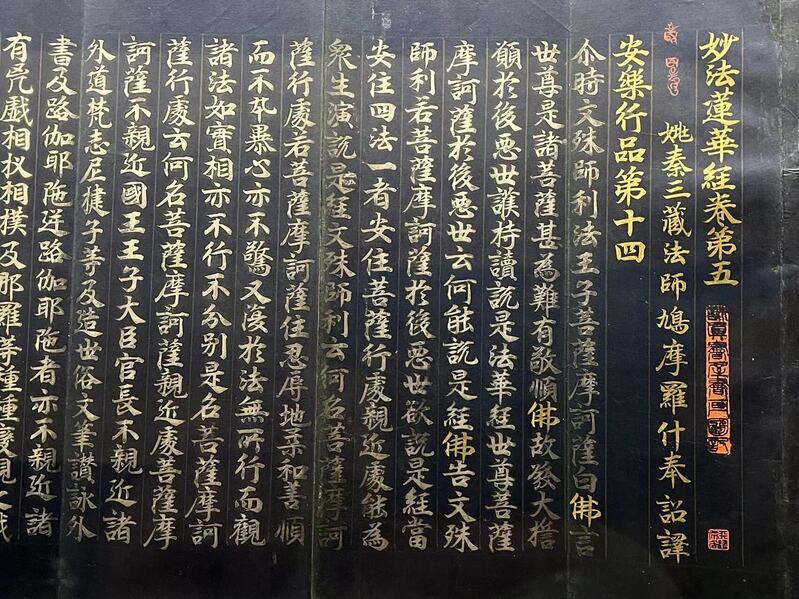 妙法蓮華経卷第五
姚秦三藏法師鳩摩羅什奉 詔譯
安樂行品第十四
尒時文殊師利法王子菩薩摩訶薩白佛言
世尊是諸菩薩甚為難有敬順佛故發大誓
願於後惡世誰持讀說是法華経世尊菩薩
摩訶薩於後惡世云何能說是経佛告文殊
師利若菩薩摩訶薩於後惡世欲說是経當
安住四法一者安住菩薩行處親近處能為
衆生演說是経文殊師利云何名菩薩摩訶
薩行處若菩薩摩訶薩住忍辱地柔和善順
而不卒暴心亦不驚又復於法無所行而觀
諸法如實相亦不行不分別是名菩薩摩訶
薩行處云何名菩薩摩訶薩親近處菩薩摩
訶薩不親近國王王子大臣官長不親近諸
外道梵志尼揵子等及造世俗文筆讚詠外
書及路伽耶陁逆路伽耶陁者亦不親近諸
有兇戲相扠相撲及那羅等種種變現之戲